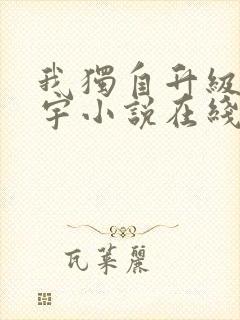 我獨自升級
宇小說在綫
瓦萊麗